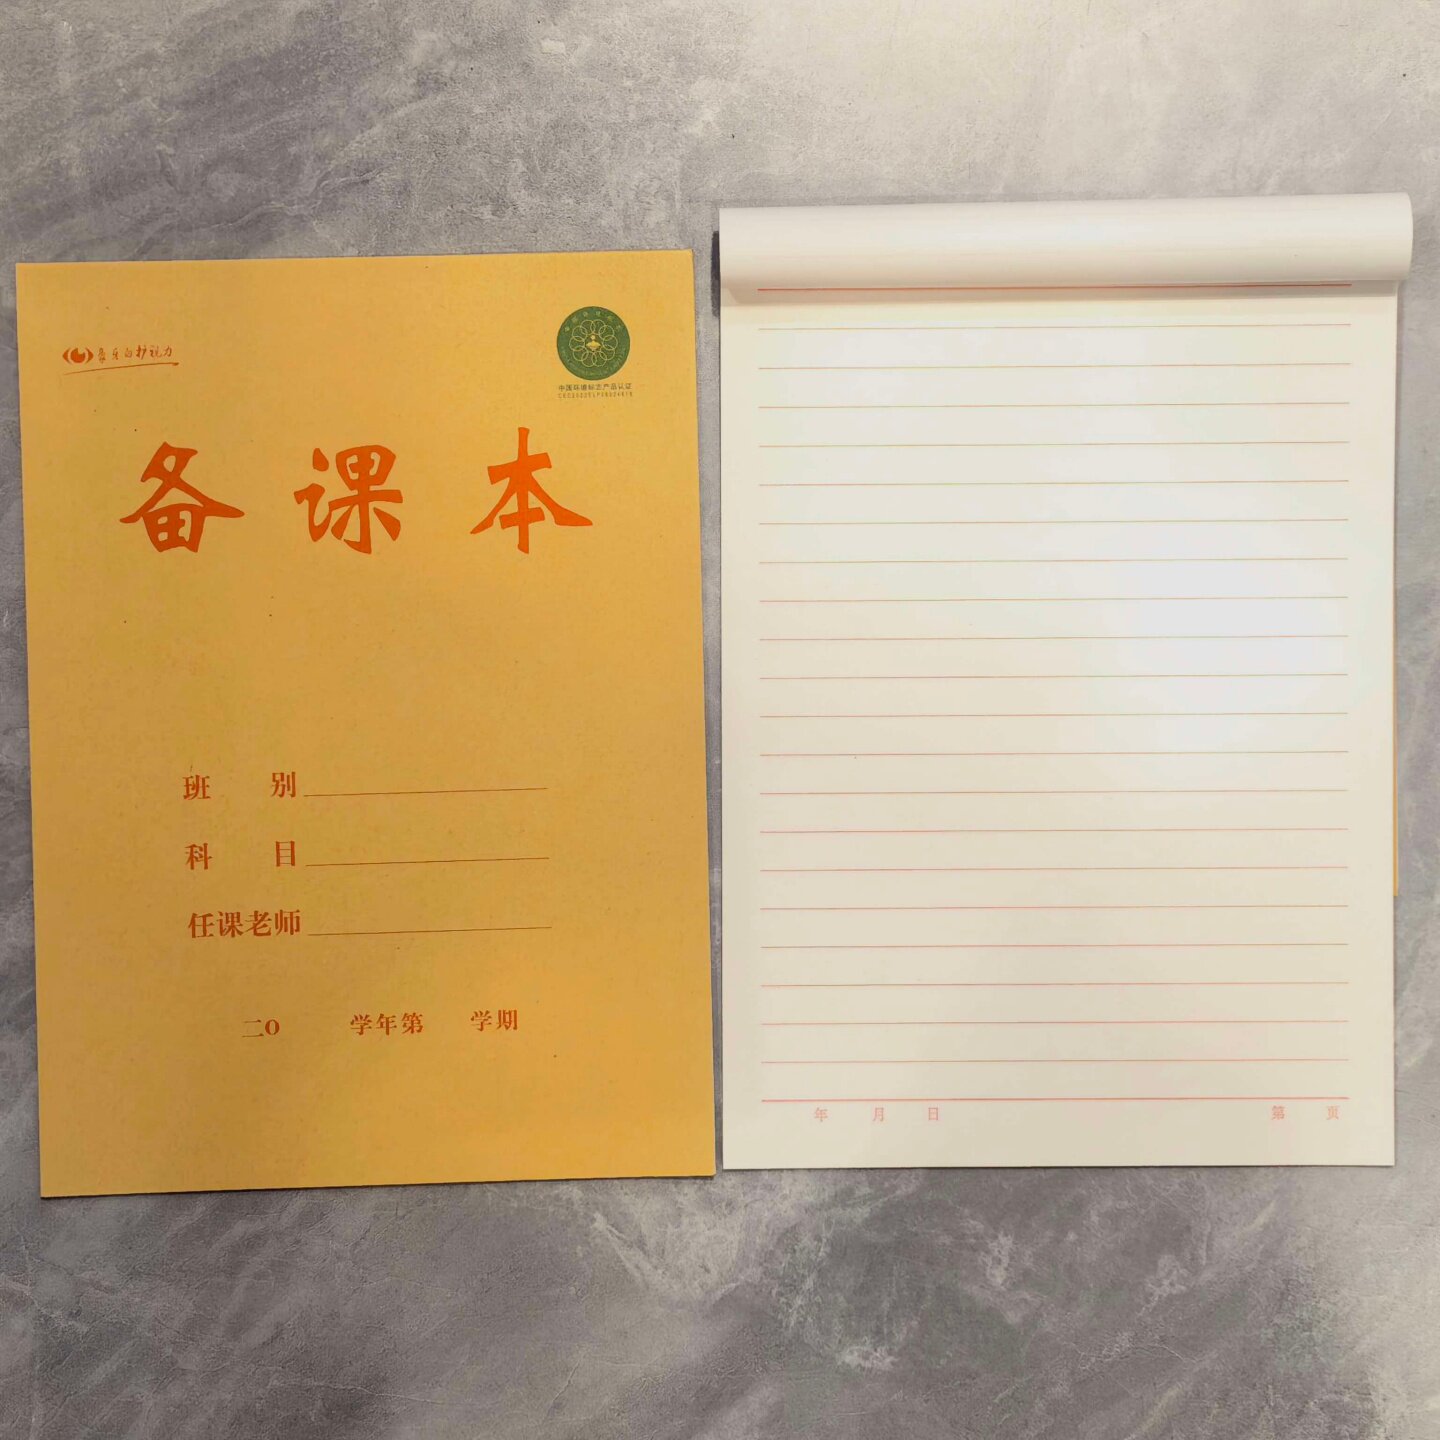 象牙白护视力
中国环境标志产品认证
备课本
班别
科目
任课老师
二O 学年第 学期
年 月 日 第 页